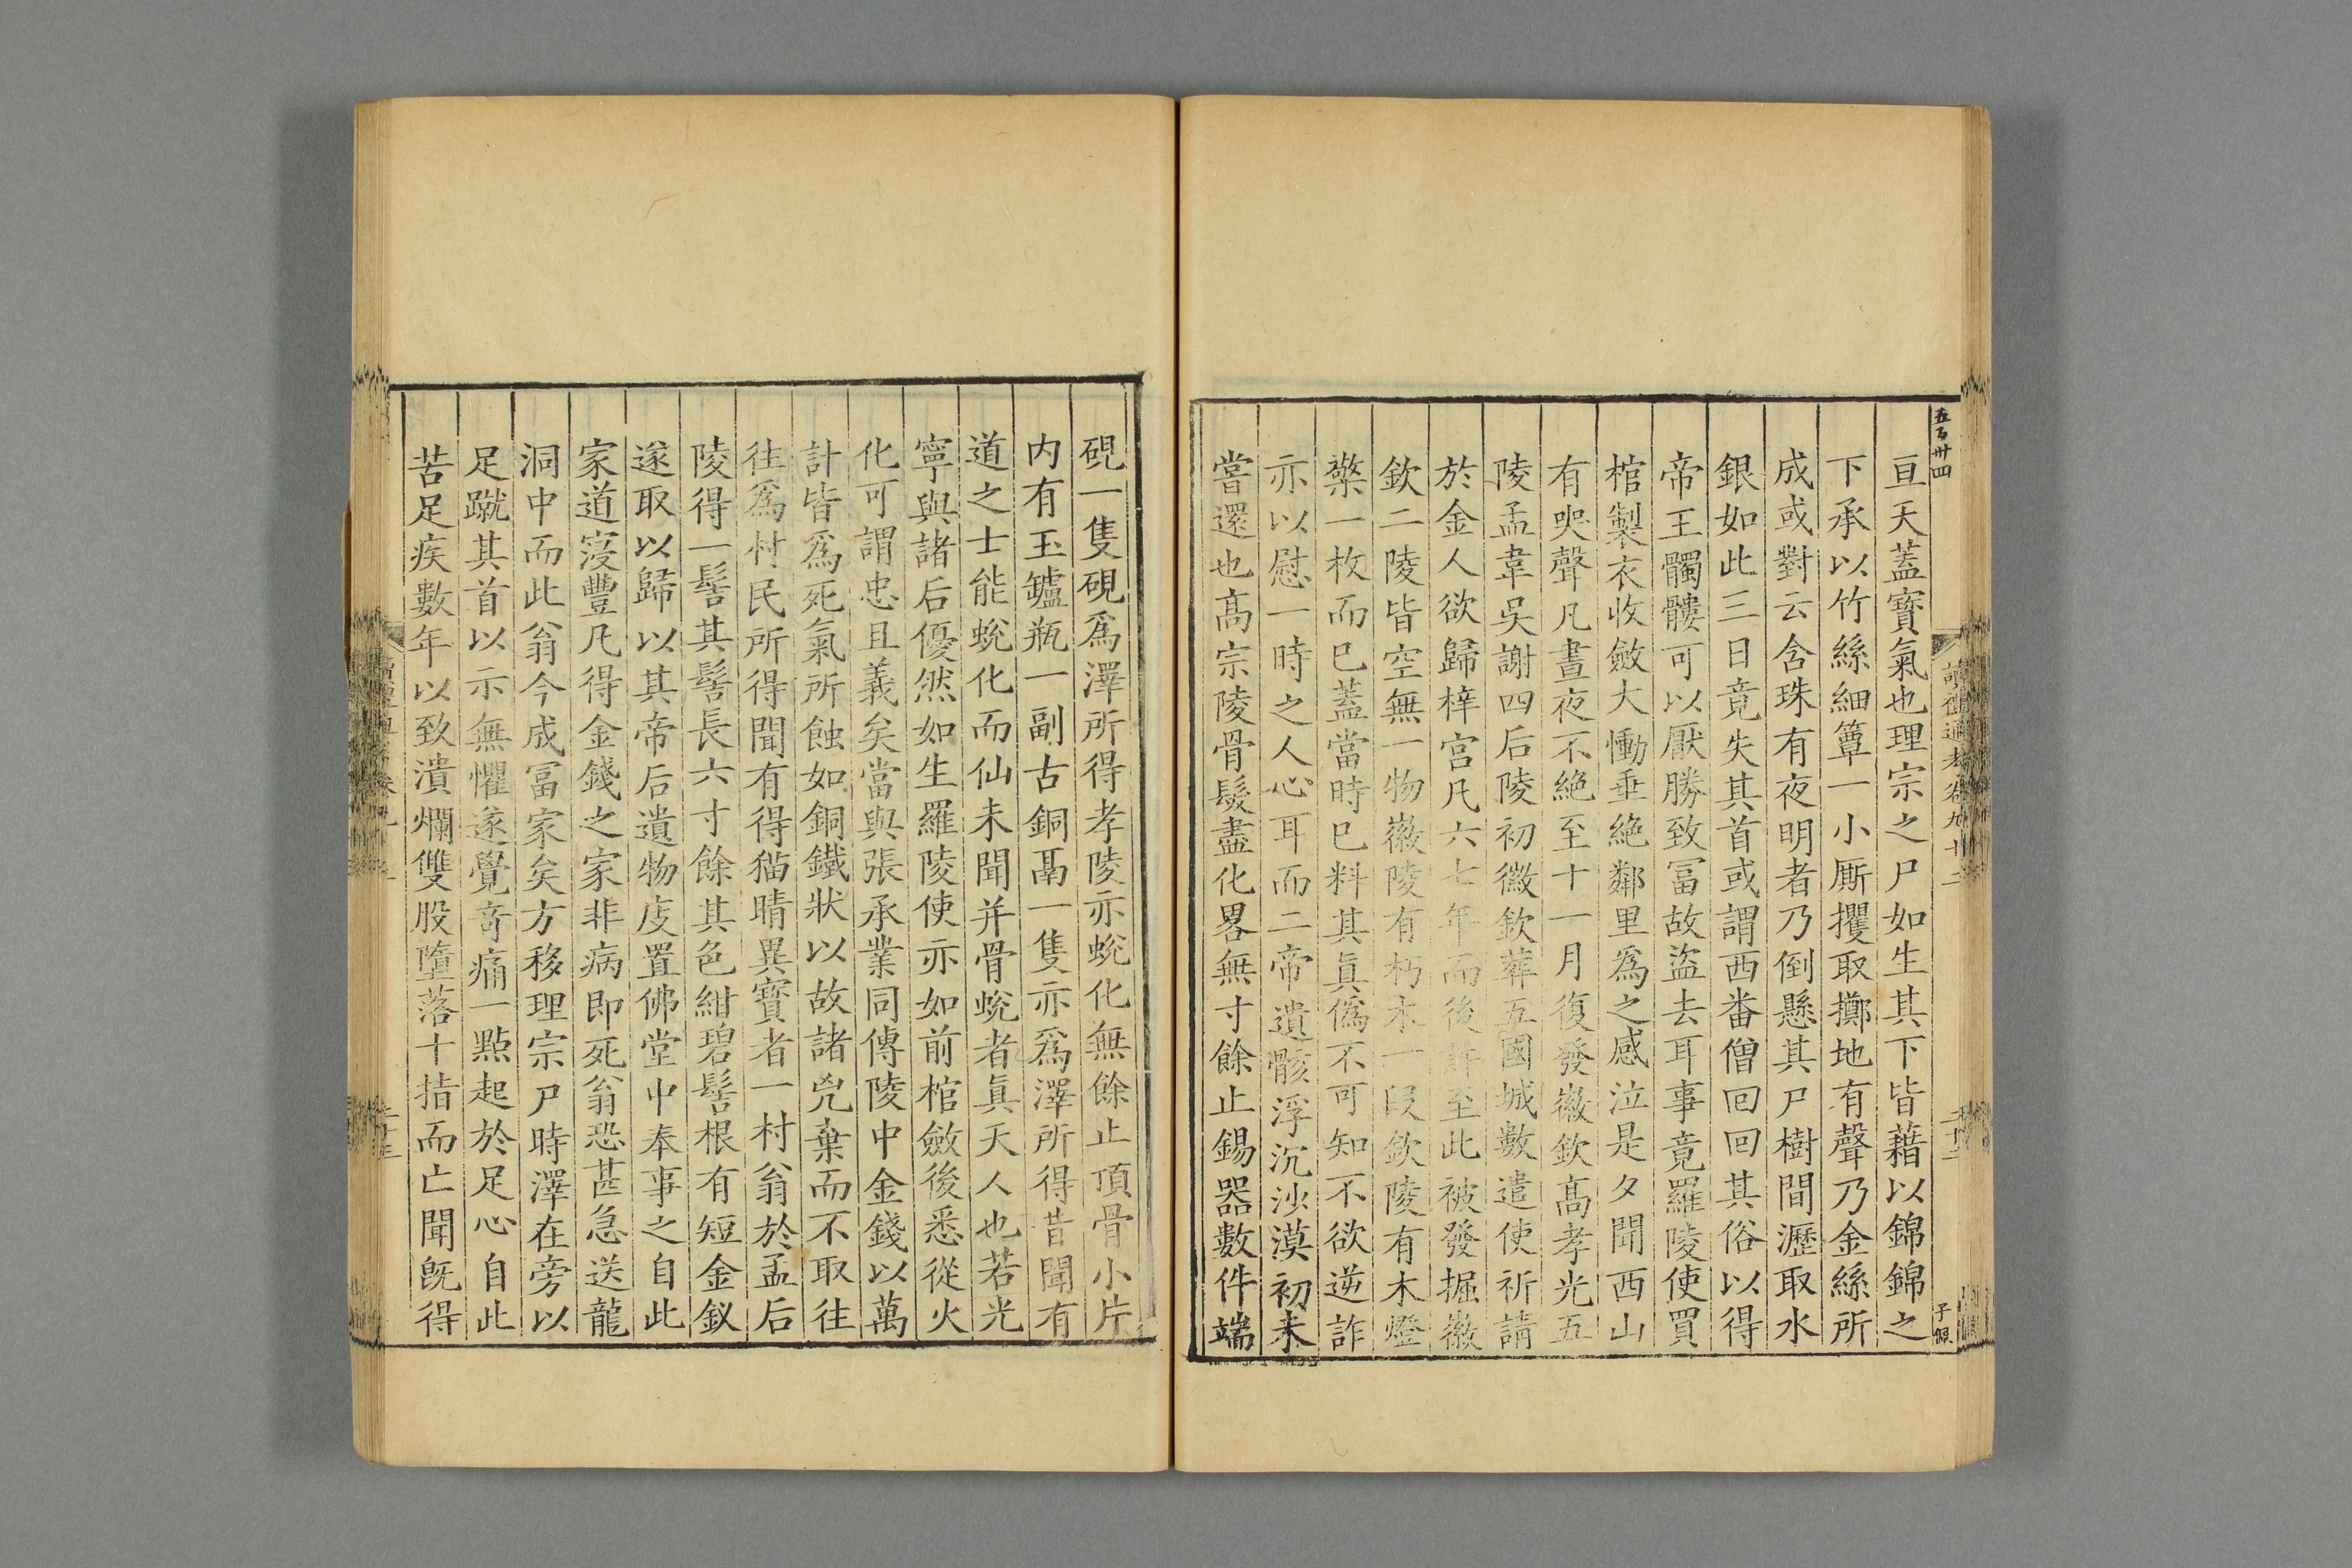 五百卅四
亘天蓋寳氣也理宗之尸如生其下皆藉以錦錦之
下承以竹絲細簟一小厮攫取擲地有聲乃金絲所
成或對云含珠有夜明者乃倒懸其尸樹間瀝取水
銀如此三日竟失其首或謂西畨僧回回其俗以得
帝王髑髏可以厭勝致冨故盜去耳事竟羅陵使買
棺製衣收斂大慟垂絶鄰里爲之感泣是夕聞西山
有哭聲凡晝夜不絶至十一月復發徽欽髙孝光五
陵孟韋吳謝四后陵初徽欽葬五國城數遣使祈請
於金人欲歸梓宫凡六七年而後許至此被發掘徽
欽二陵皆空無一物徽陵有朽木一段欽陵有木燈
檠一枚而巳蓋當時巳料其眞僞不可知不欲逆詐
亦以慰一時之人心耳而二帝遺骸浮沉沙漠初未
嘗還也髙宗陵骨髮盡化畧無寸餘止錫器數件端
硯一隻硯爲澤所得孝陵亦蛻化無餘止頂骨小片
内有玉罏瓶一副古銅鬲一隻亦爲澤所得昔聞有
道之士能蛻化而仙未聞并骨蛻者眞天人也若光
寧與諸后優然如生羅陵使亦如前棺斂後悉從火
化可謂忠且義矣當與張承業同傳陵中金錢以萬
計皆爲死氣所蝕如銅鐵狀以故諸兇棄而不取往
往爲村民所得聞有得猫睛異寳者一村翁於孟后
陵得一髻其髻長六寸餘其色紺碧髻根有短金釵
遂取以歸以其帝后遺物庋置佛堂中奉事之自此
家道寖豐凡得金錢之家非病即死翁恐甚急送龍
洞中而此翁今成冨家矣方移理宗尸時澤在旁以
足蹴其首以示無懼遂覺竒痛一㸃起於足心自此
苦足疾數年以致潰爛雙股墮落十指而亡聞旣得